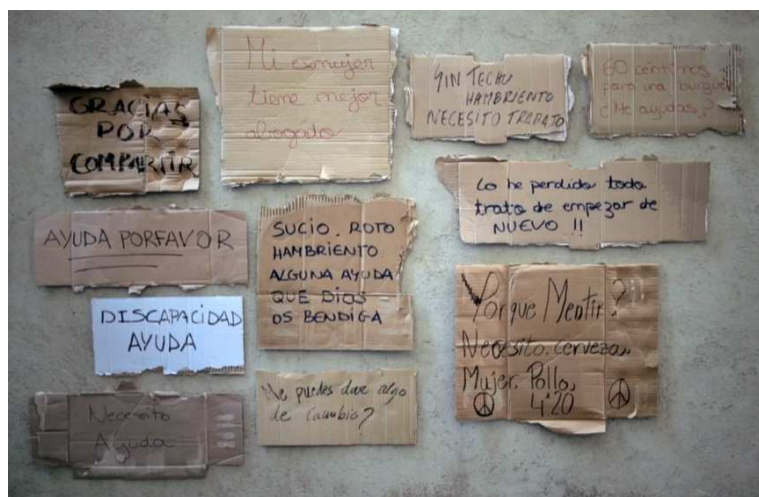 GRACIAS
POR
COMPARTIR
Mi exmujer
tiene mejor
abogado
SIN TECHO
HAMBRIENTO
NECESITO TRABAJO
60 céntimos
para una burguer
¿Me ayudas?
Lo he perdido todo
trato de empezar de
NUEVO !!
AYUDA PORFAVOR
SUCIO. ROTO
HAMBRIENTO.
ALGUNA AYUDA
QUE DIOS
OS BENDIGA
DISCAPACIDAD
AYUDA
Porque Mentir?
Necesito. cerveza,
Mujer. Pollo,
4'20
Necesito
Ayuda
Me puedes dar algo
de Cambio?